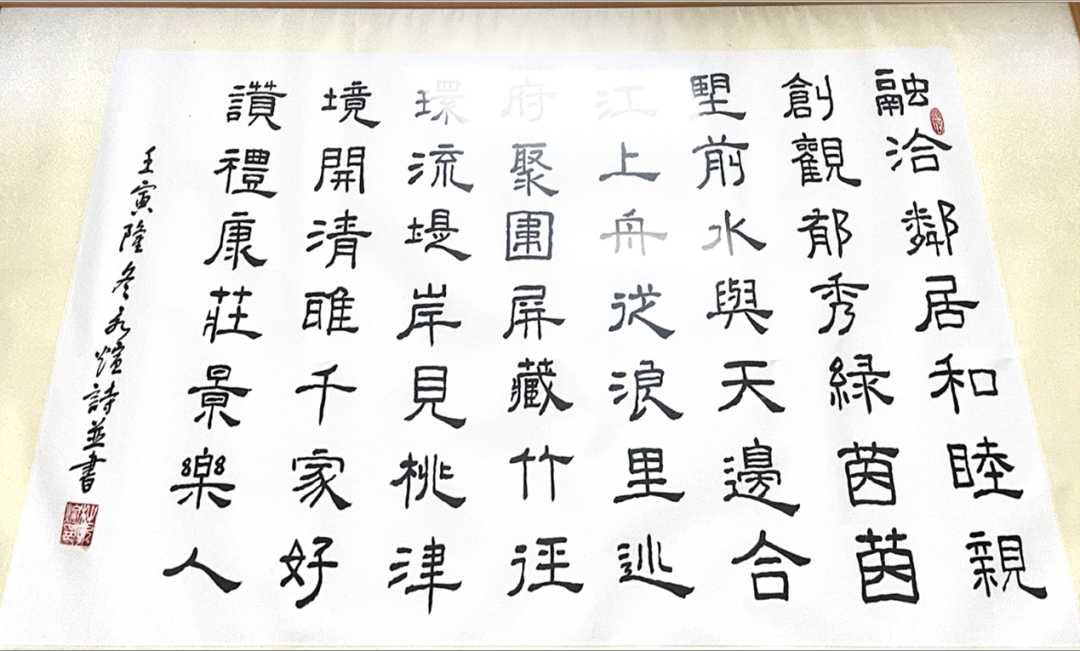 融洽鄰居和睦親
創觀郁秀緑茵茵
墅前水與天邊合
江上舟從浪里巡
府聚圍屏藏竹徑
環流堤岸見桃津
境開清雅千家好
讚禮康莊景樂人
壬寅隆冬永煊詩並書